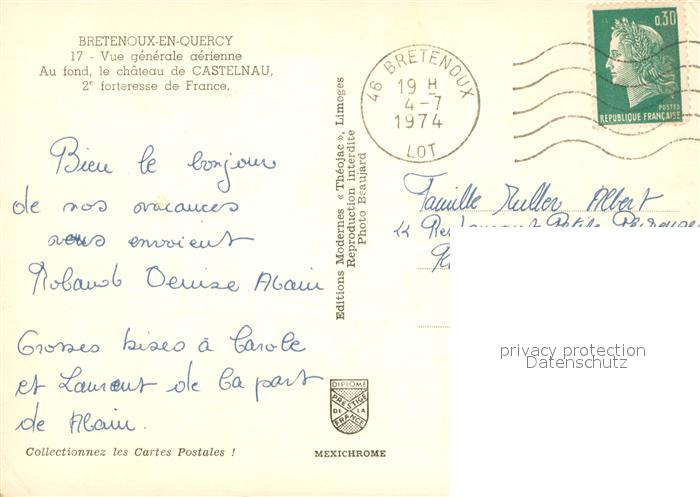 BRETENOUX-EN-QUERCY
17 - Vue générale aérienne
Au fond, le château de CASTELNAU,
2e forteresse de France.
Bien le bonjour
de nos vacances
vous envoient
Roland Denise Alain
Grosses bises à Carole
et Laurent de la part
de Alain.
Collectionnez les Cartes Postales !
Editions Modernes « Théojac », Limoges
Reproduction interdite
Photo Beaujard
DIPLOME
PRESTIGE
DE LA
FRANCE
MEXICHROME
46 BRETENOUX
19 H
4-7
1974
LOT
0,30
POSTES
REPUBLIQUE FRANÇAISE
Famille Muller Albert
privacy protection
Datenschutz